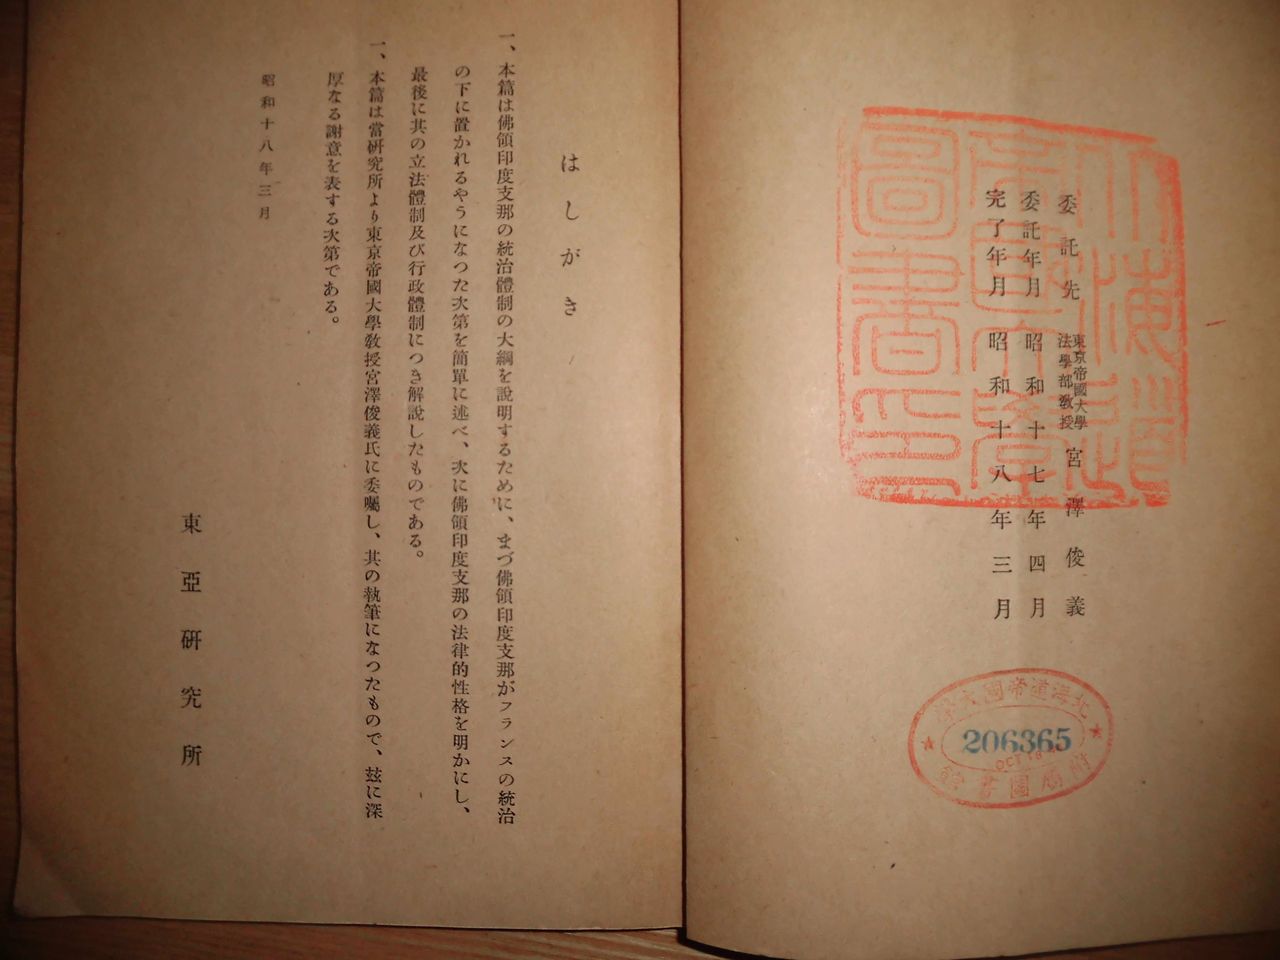 委託先 東京帝國大學法學部教授 宮澤俊義
委託年月 昭和十七年四月
完了年月 昭和十八年三月
北海道帝國大學圖書印
北海道帝國大學
206365
OCT 18
附屬圖書館
はしがき
一、本篇は佛領印度支那の統治體制の大綱を說明するために、まづ佛領印度支那がフランスの統治
の下に置かれるやうになつた次第を簡單に述べ、次に佛領印度支那の法律的性格を明かにし、
最後に其の立法體制及び行政體制につき解說したものである。
一、本篇は當硏究所より東京帝國大學敎授宮澤俊義氏に委囑し、其の執筆になつたもので、玆に深
厚なる謝意を表する次第である。
昭和十八年三月
東亞硏究所